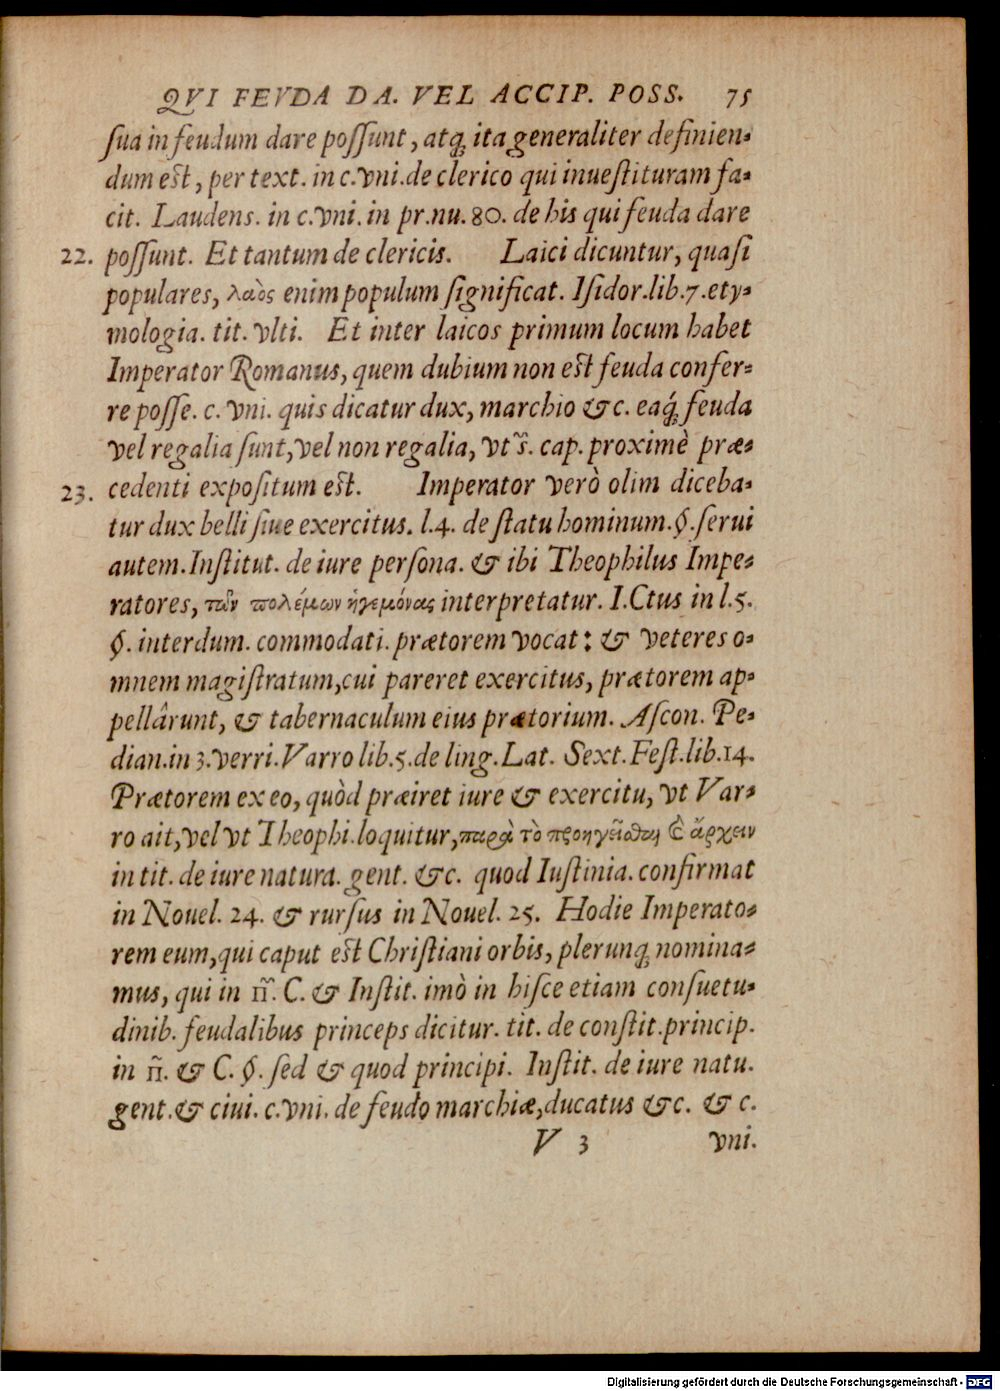 QVI FEVDA DA. VEL ACCIP. POSS. 75
ſua in feudum dare poſſunt, atq́; ita generaliter definien-
dum eſt, per text. in c.vni.de clerico qui inueſtituram fa-
cit. Laudens. in c.vni. in pr.nu. 80. de his qui feuda dare
22. poſſunt. Et tantum de clericis. Laici dicuntur, quaſi
populares, λαὸς enim populum ſignificat. Iſidor.lib.7.ety-
mologia. tit. vlti. Et inter laicos primum locum habet
Imperator Romanus, quem dubium non eſt feuda confer-
re poſſe. c. vni. quis dicatur dux, marchio &c. eaq́; feuda
vel regalia ſunt, vel non regalia, vt s̃. cap. proximè præ-
23. cedenti expoſitum eſt. Imperator verò olim diceba-
tur dux belli ſiue exercitus. l.4. de ſtatu hominum.§.ſerui
autem.Inſtitut. de iure perſona. & ibi Theophilus Impe-
ratores, τῶν πολέμων ἡγεμόνας interpretatur. I.Ctus in l.5.
§. interdum. commodati. prætorem vocat: & veteres o-
mnem magiſtratum,cui pareret exercitus, prætorem ap-
pellârunt, & tabernaculum eius prætorium. Aſcon. Pe-
dian.in 3.verri.Varro lib.5.de ling.Lat. Sext.Feſt.lib.14.
Prætorem ex eo, quòd præiret iure & exercitu, vt Var-
ro ait,vel vt Theophi.loquitur,παρὰ τὸ προηγεῖσθαι καὶ ἄρχειν
in tit. de iure natura. gent. &c. quod Iuſtinia. confirmat
in Nouel. 24. & rurſus in Nouel. 25. Hodie Imperato-
rem eum,qui caput eſt Chriſtiani orbis, plerunq; nomina-
mus, qui in ff̃. C. & Inſtit. imò in hiſce etiam conſuetu-
dinib. feudalibus princeps dicitur. tit. de conſtit.princip.
in ff̃. & C. §. ſed & quod principi. Inſtit. de iure natu.
gent.& ciui. c.vni. de feudo marchiæ,ducatus &c. & c.
V 3 vni.
Digitalisierung gefördert durch die Deutsche Forschungsgemeinschaft - DFG